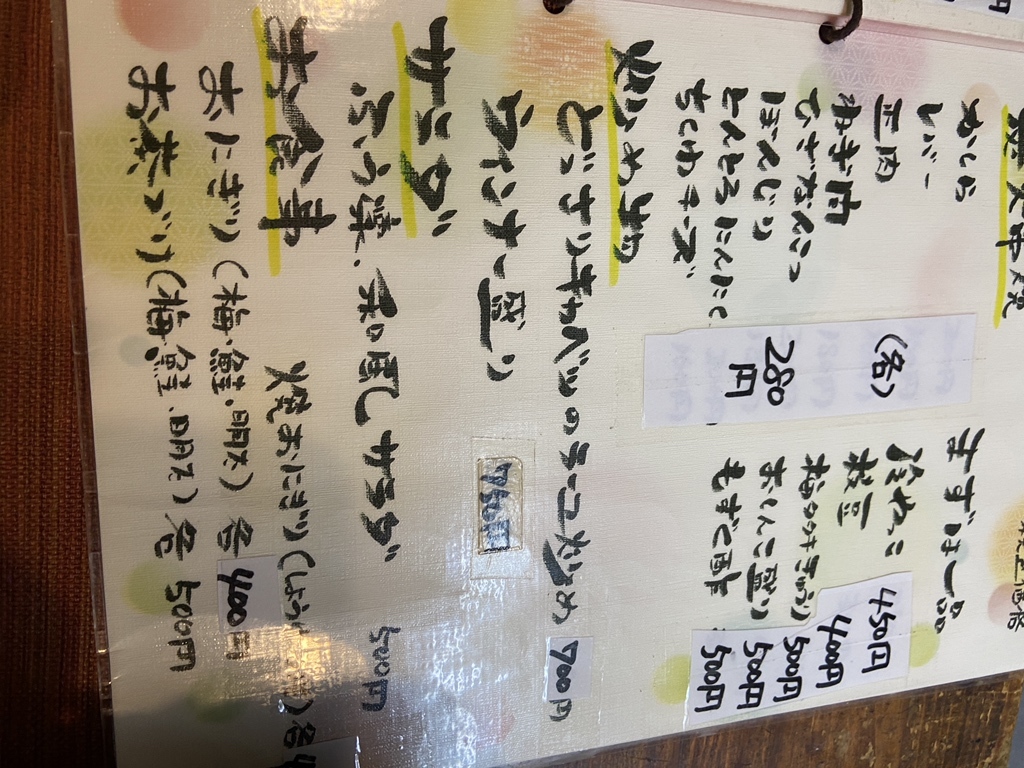 炭火串焼
かしら
レバー
正肉
ねぎ間
ひざなんこつ
ぼんじり
とんとろにんにく
ちくわチーズ
(各)
280円
まずは一品
冷やっこ 450円
枝豆 400円
梅タタキきゅうり 500円
おしんこ盛り 500円
もずく酢 500円
炒め物
どっさりキャベツのラー油炒め 700円
ウインナー盛り 750円
サラダ
和風サラダ 500円
お食事
焼おにぎり(しょうゆ 各4
おにぎり(梅.鮭.明太) 各400円
お茶づけ(梅.鮭.明太) 各500円